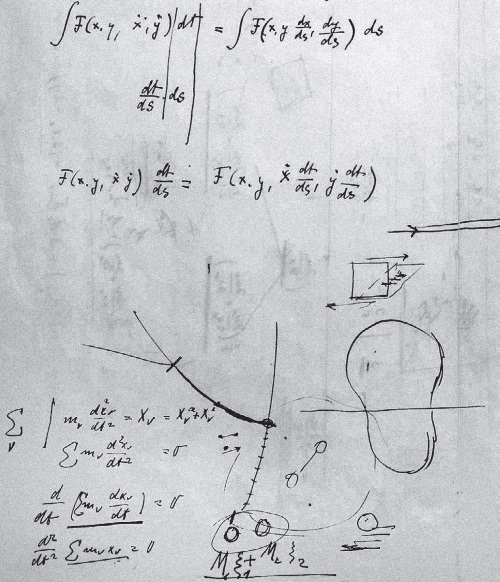 ∫ F(x, y, ẋ, ẏ) dt = ∫ F(x, y dx/ds, dy/ds) ds
dt/ds ds
F(x, y, ẋ ẏ) dt/ds = F(x, y, ẋ dt/ds, ẏ dt/ds)
Σ_ν | m_ν d²x_ν/dt² = X_ν = X_ν^a + X_ν^i
Σ m_ν d²x_ν/dt² = 0
d/dt (Σ m_ν dx_ν/dt) = 0
d²/dt² Σ m_ν x_ν = 0